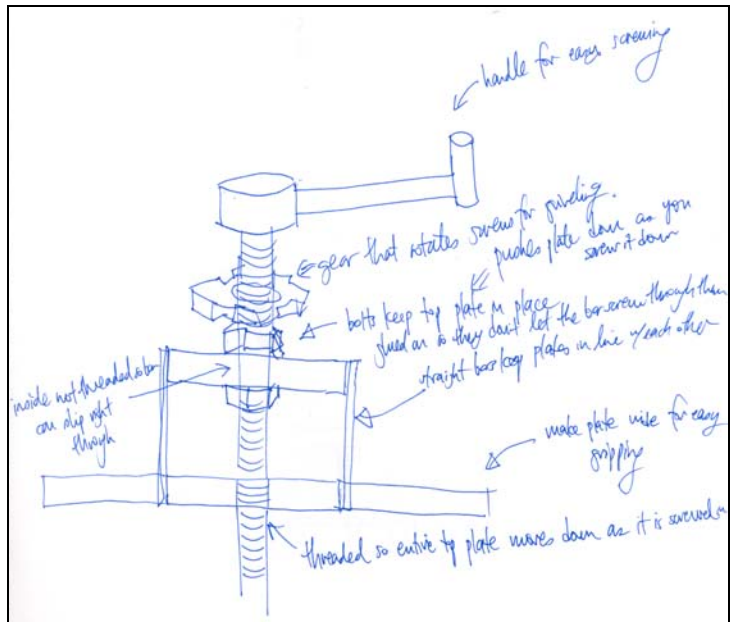 handle for easy screwing
gear that rotates screws for swiveling.
pushes plate down as you
screw it down
bolts keep top plate in place
glued on so they don't let the bar screw through them
straight bars keep plates in line w/ each other
inside not threaded so bar
can slip right
through
make plate wide for easy
gripping
threaded so entire top plate moves down as it is screwed in